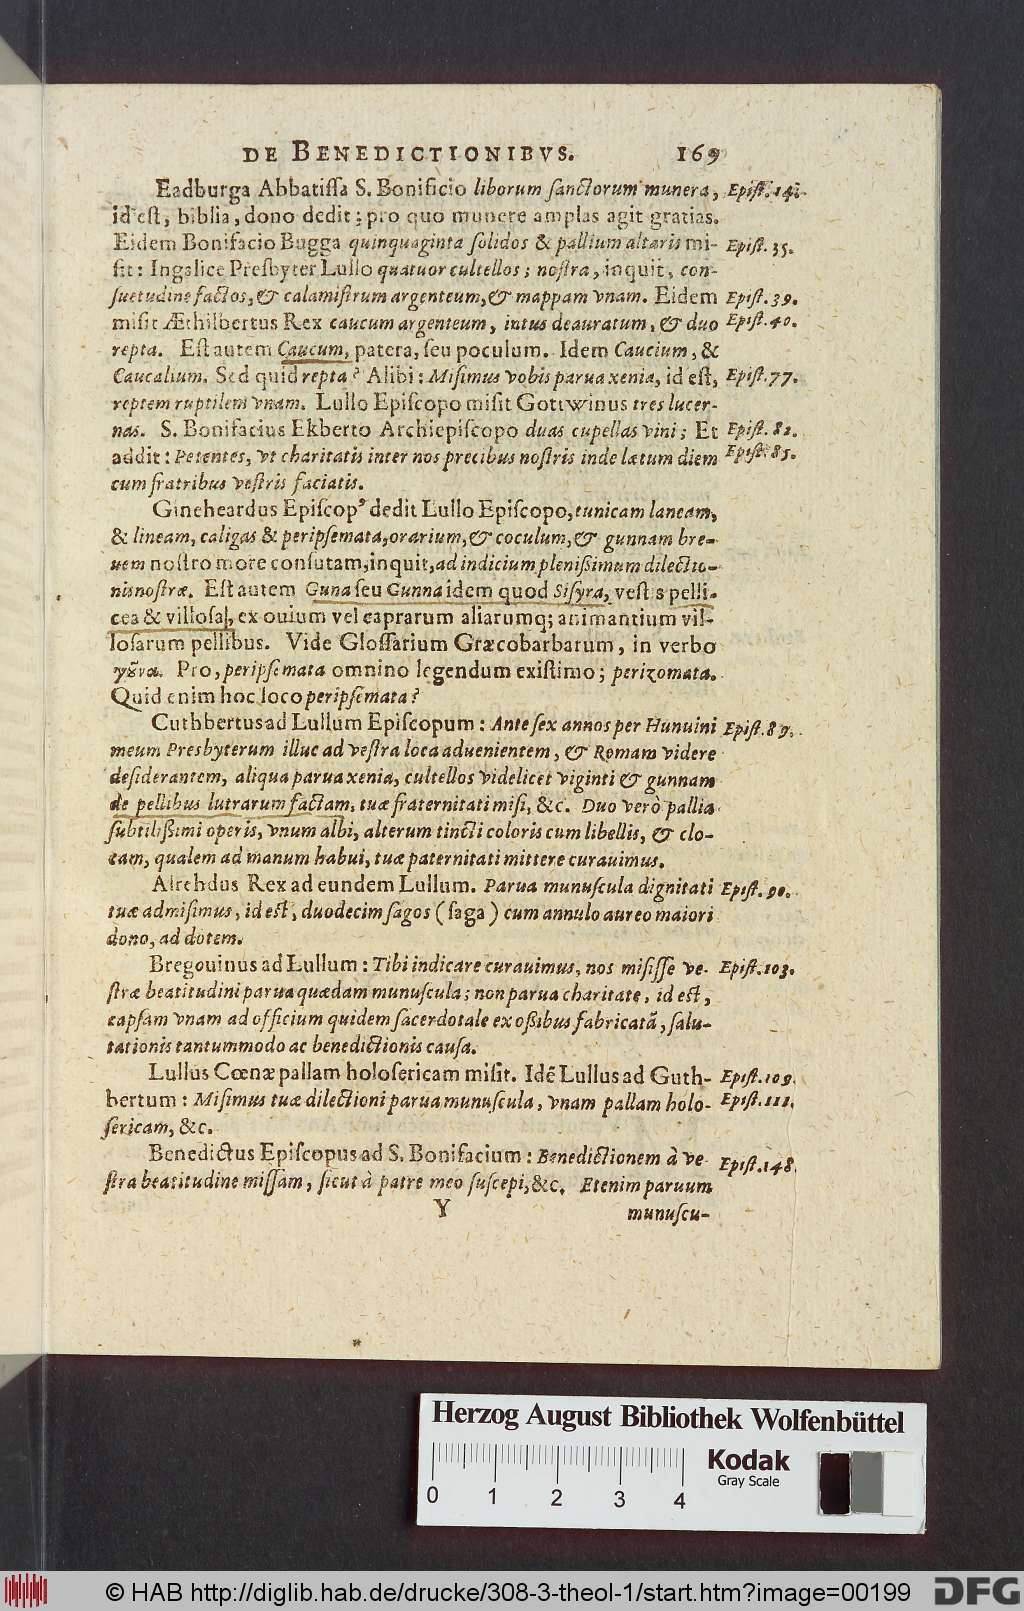 DE BENEDICTIONIBVS. 169
Eadburga Abbatiſſa S. Bonificio liborum ſanctorum munera, Epiſt. 14.
id eſt, biblia, dono dedit; pro quo munere amplas agit gratias.
Eidem Bonifacio Bugga quinquaginta ſolidos & pallium altaris mi- Epiſt. 35.
ſit: Ingalice Preſbyter Lullo quatuor cultellos; noſtra, inquit, con-
ſuetudine factos, & calamiſtrum argenteum, & mappam vnam. Eidem Epiſt. 39.
miſit Æthilbertus Rex caucum argenteum, intus deauratum, & duo Epiſt. 40.
repta. Eſt autem Caucum, patera, ſeu poculum. Idem Caucium, &
Caucalium. Sed quid repta? Alibi: Miſimus vobis parua xenia, id eſt, Epiſt. 77.
reptem ruptilem vnam. Lullo Epiſcopo miſit Gottwinus tres lucer-
nas. S. Bonifacius Ekberto Archiepiſcopo duas cupellas vini; Et Epiſt. 82.
addit: Petentes, vt charitatis inter nos precibus noſtris inde lætum diem Epiſt. 85.
cum fratribus veſtris faciatis.
Gineheardus Epiſcopꝰ dedit Lullo Epiſcopo, tunicam laneam,
& lineam, caligas & peripſemata, orarium, & coculum, & gunnam bre-
uem noſtro more conſutam, inquit, ad indicium pleniſſimum dilectio-
nis noſtræ. Eſt autem Guna ſeu Gunna idem quod Siſyra, veſtis pelli-
cea & villoſa, ex ouium vel caprarum aliarumq; animantium vil-
loſarum pellibus. Vide Gloſſarium Græcobarbarum, in verbo
γȣ̃να. Pro, peripſemata omnino legendum exiſtimo; perizomata.
Quid enim hoc loco peripſemata?
Cuthbertus ad Lullum Epiſcopum: Ante ſex annos per Hunuini Epiſt. 89.
meum Presbyterum illuc ad veſtra loca aduenientem, & Romam videre
deſiderantem, aliqua parua xenia, cultellos videlicet viginti & gunnam
de pellibus lutrarum factam, tuæ fraternitati miſi, &c. Duo verò pallia
ſubtiliſſimi operis, vnum albi, alterum tincti coloris cum libellis, & clo-
cam, qualem ad manum habui, tuæ paternitati mittere curauimus.
Alrehdus Rex ad eundem Lullum. Parua munuſcula dignitati Epiſt. 90.
tuæ admiſimus, id eſt, duodecim ſagos (ſaga) cum annulo aureo maiori
dono, ad dotem.
Bregouinus ad Lullum: Tibi indicare curauimus, nos miſiſſe ve- Epiſt. 103.
ſtræ beatitudini parua quædam munuſcula; non parua charitate, id eſt,
capſam vnam ad officium quidem ſacerdotale ex oſſibus fabricatã, ſalu-
tationis tantummodo ac benedictionis cauſa.
Lullus Cœnæ pallam holoſericam miſit. Idẽ Lullus ad Guth- Epiſt. 109.
bertum: Miſimus tuæ dilectioni parua munuſcula, vnam pallam holo- Epiſt. 111.
ſericam, &c.
Benedictus Epiſcopus ad S. Bonifacium: Benedictionem à ve- Epiſt. 148.
ſtra beatitudine miſſam, ſicut à patre meo ſuſcepi, &c. Etenim paruum
Y munuſcu-
Herzog August Bibliothek Wolfenbüttel
Kodak
Gray Scale
0 1 2 3 4
© HAB http://diglib.hab.de/drucke/308-3-theol-1/start.htm?image=00199
DFG